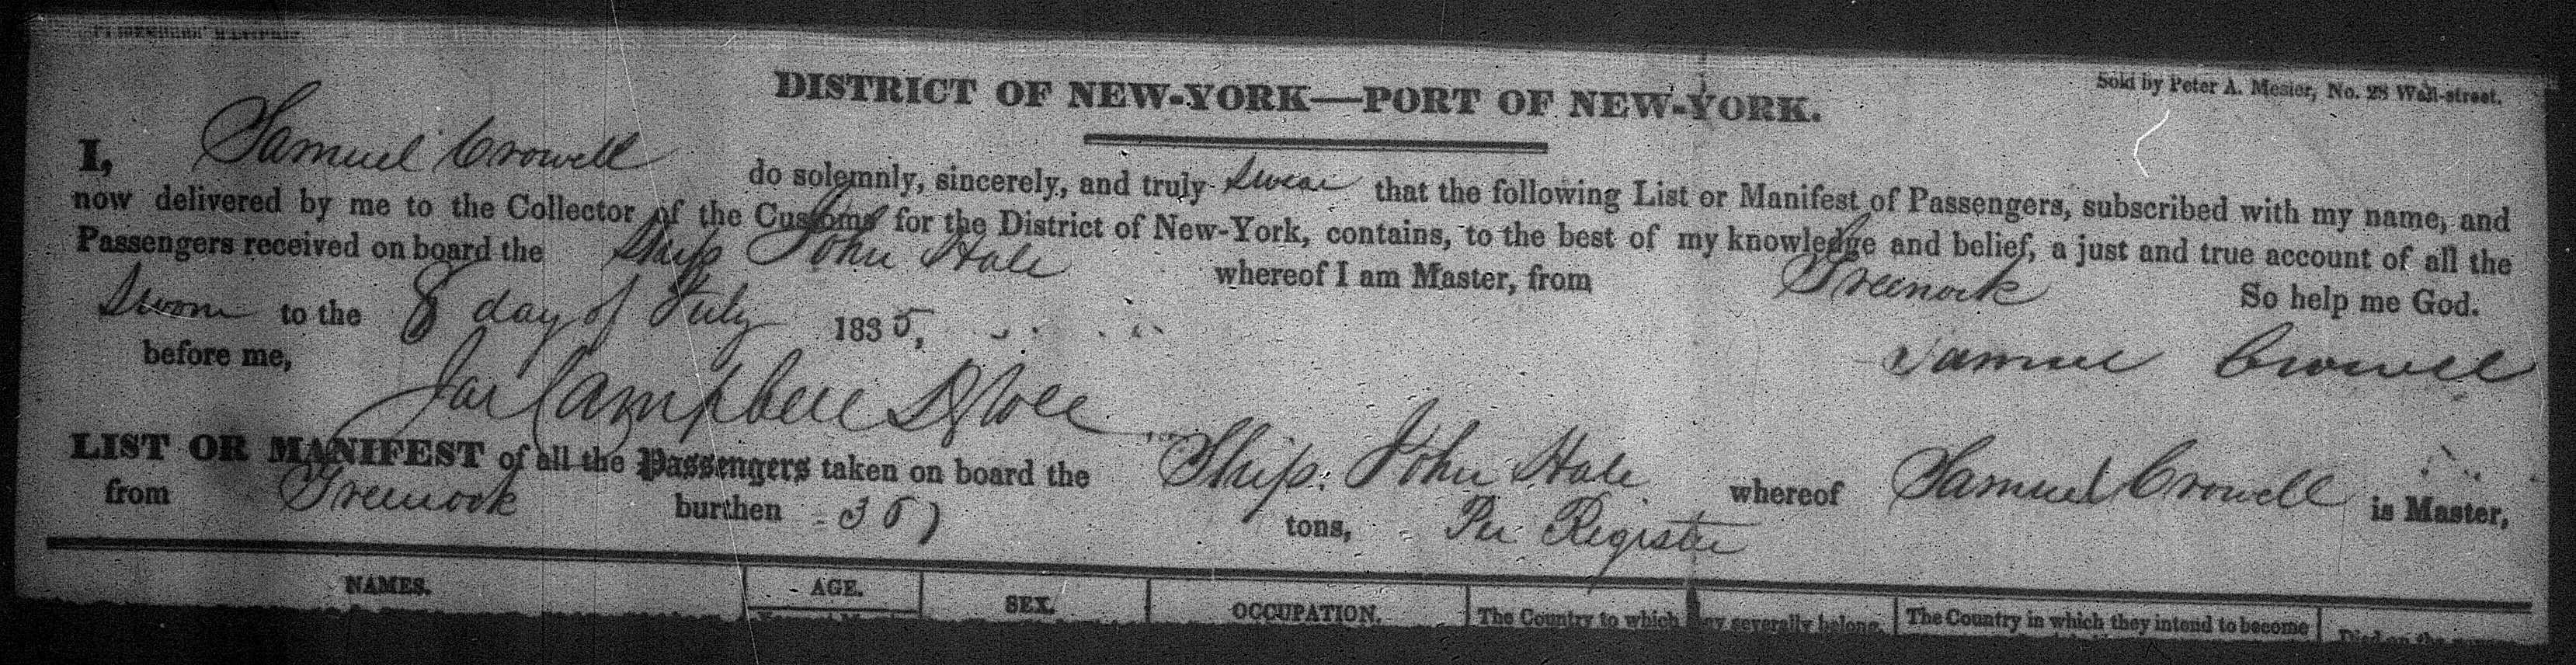 DISTRICT OF NEW-YORK—PORT OF NEW-YORK.
Sold by Peter A. Mesier, No. 28 Wall-street.
I, Samuel Crowell do solemnly, sincerely, and truly swear that the following List or Manifest of Passengers, subscribed with my name, and
now delivered by me to the Collector of the Customs for the District of New-York, contains, to the best of my knowledge and belief, a just and true account of all the
Passengers received on board the Ship John Hale whereof I am Master, from Greenock So help me God.
Sworn to the 8 day of July 1835,
before me, Samuel Crowell
Jas Campbell
LIST OR MANIFEST of all the Passengers taken on board the Ship John Hale whereof Samuel Crowell is Master,
from Greenock burthen tons, Per Register
NAMES. AGE. SEX. OCCUPATION. The Country to which they severally belong. The Country in which they intend to become Died on the